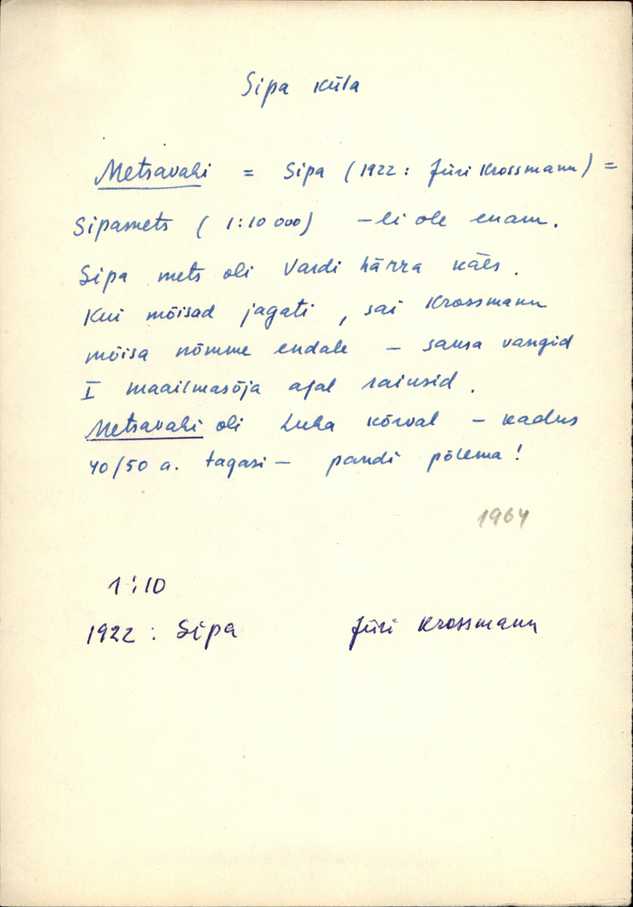 Sipa küla
Metsavahi = Sipa (1922: Jüri Krossmann) =
Sipamets (1:10 000) – Ei ole enam.
Sipa mets oli Vardi härra käes.
Kui mõisad jagati, sai Krossmann
mõisa nõmme endale – saksa vangid
I maailmasõja ajal raiusid.
Metsavahi oli Luha kõrval – kadus
40/50 a. tagasi – pandi põlema!
1964
1:10
1922: Sipa Jüri Krossmann